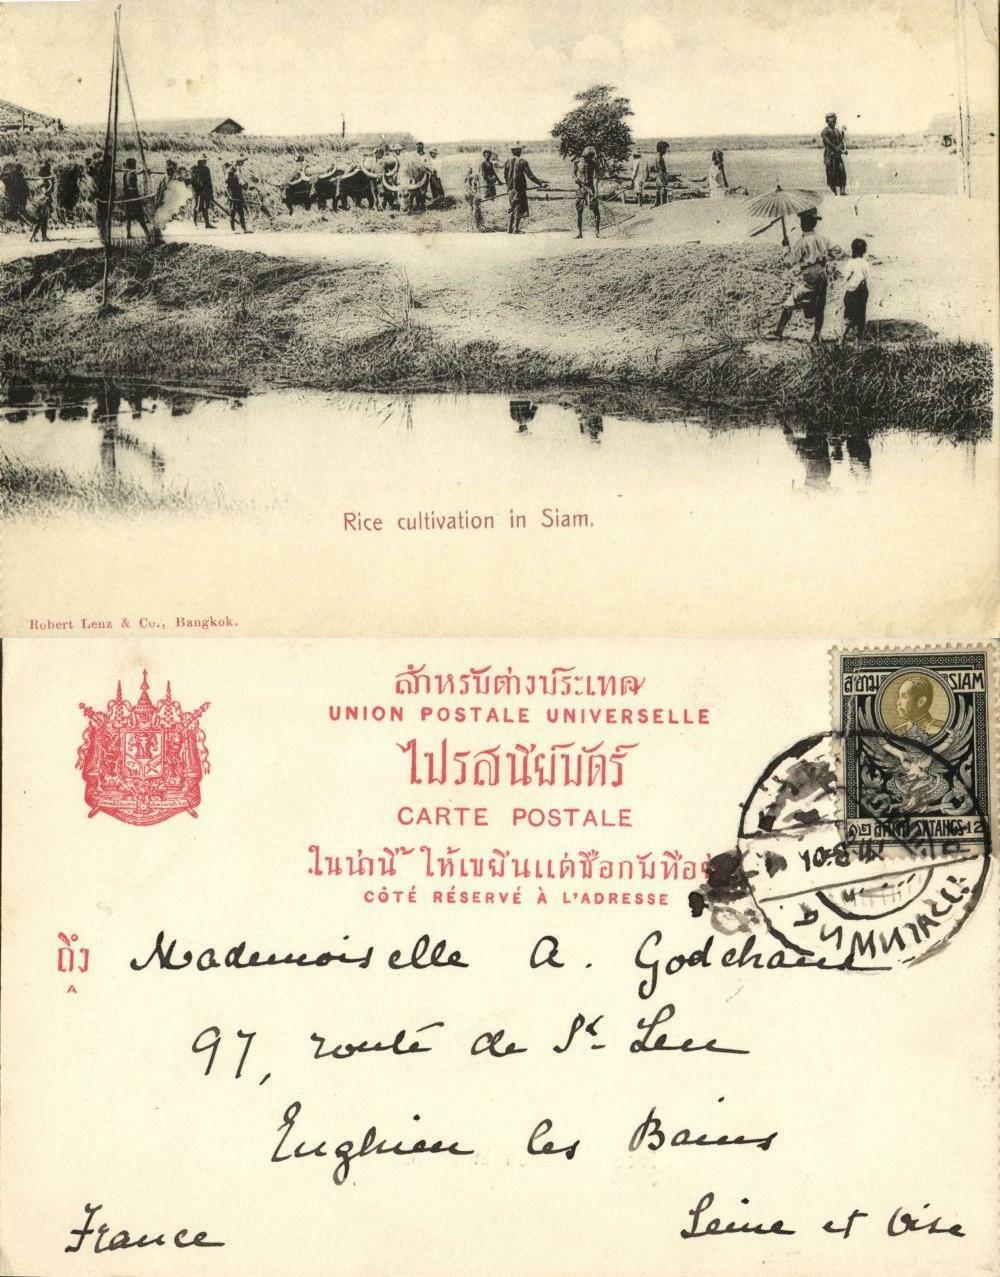 Rice cultivation in Siam.
Robert Lenz & Co., Bangkok.
สำหรับต่างประเทศ
UNION POSTALE UNIVERSELLE
ไปรสนียบัตร์
CARTE POSTALE
ในน่านี้ ให้เขียนแต่ชื่อกับที่อยู่
CÔTÉ RÉSERVÉ À L'ADRESSE
สยาม SIAM
๑๒ สตางค์ SATANGS·12
ถึง
A
Mademoiselle A. Godchaux
97, route de St Leu
Enghien les Bains
France
Seine et Oise